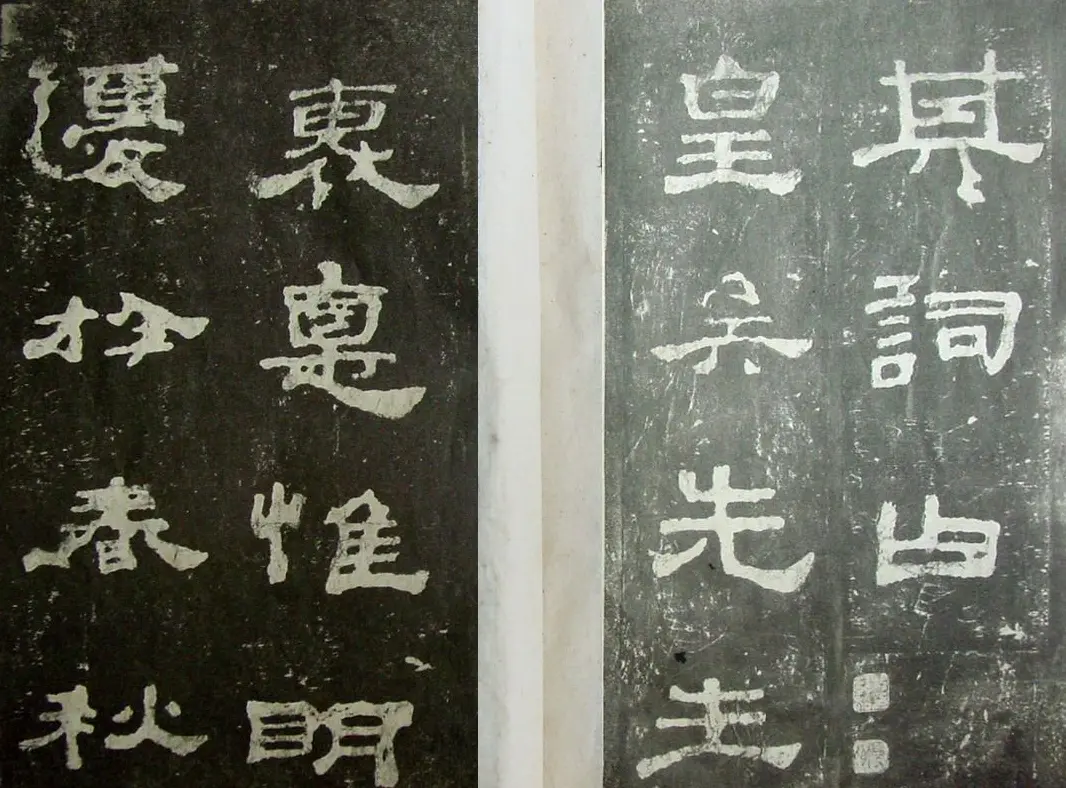 其詞曰
皇矣先生
褱惪惟明
優於春秋